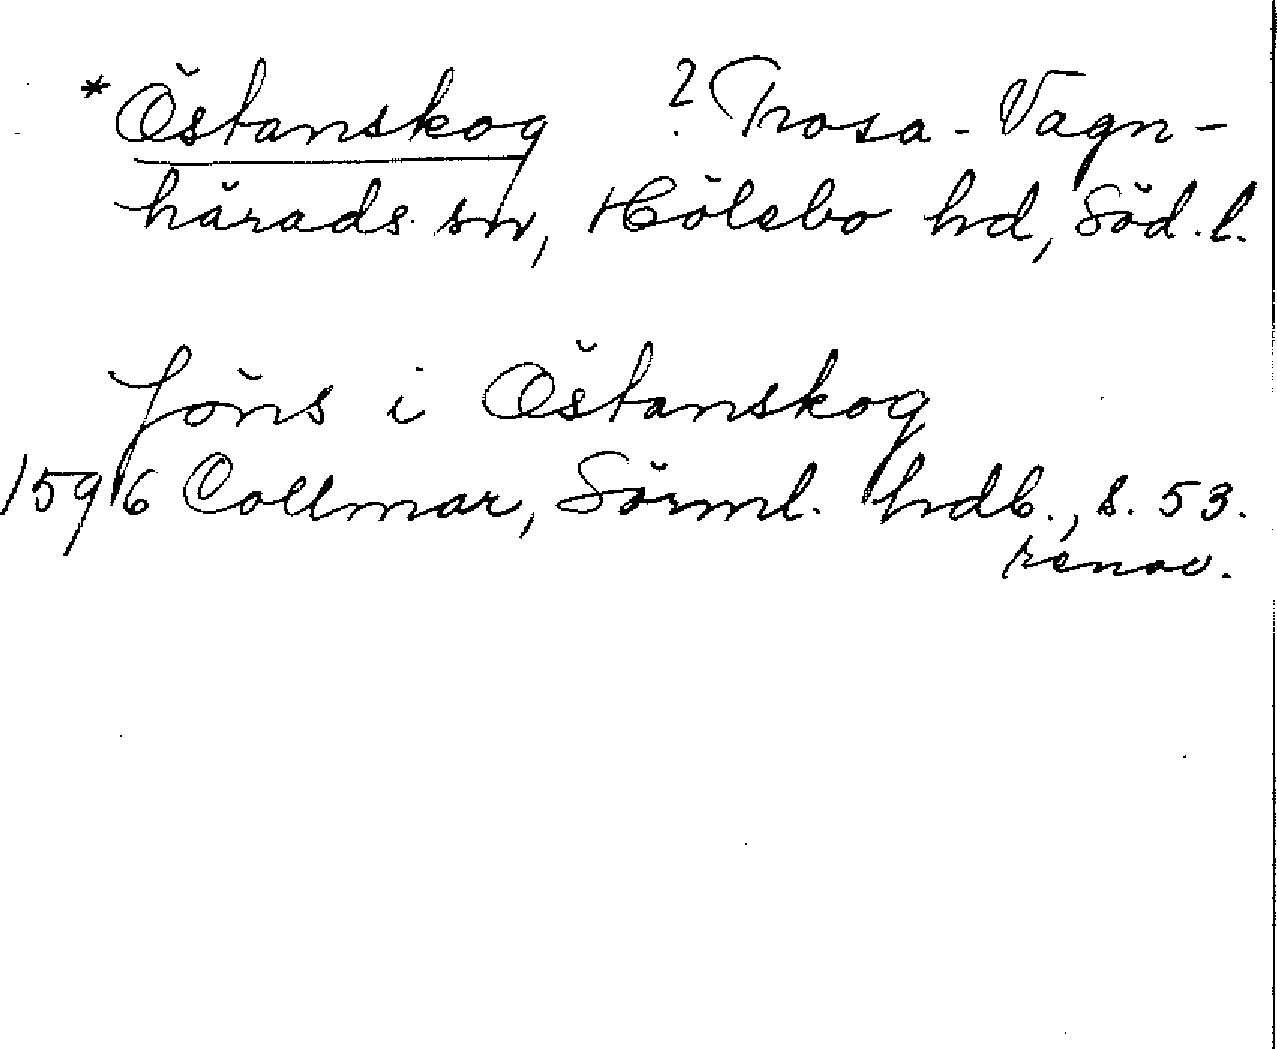 * Östanskog ? Trosa-Vagn-
härads sn, Hölebo hd, Söd. l.
Jöns i Östanskog
1596 Collmar, Sörml. hdb., s. 53.
renov.